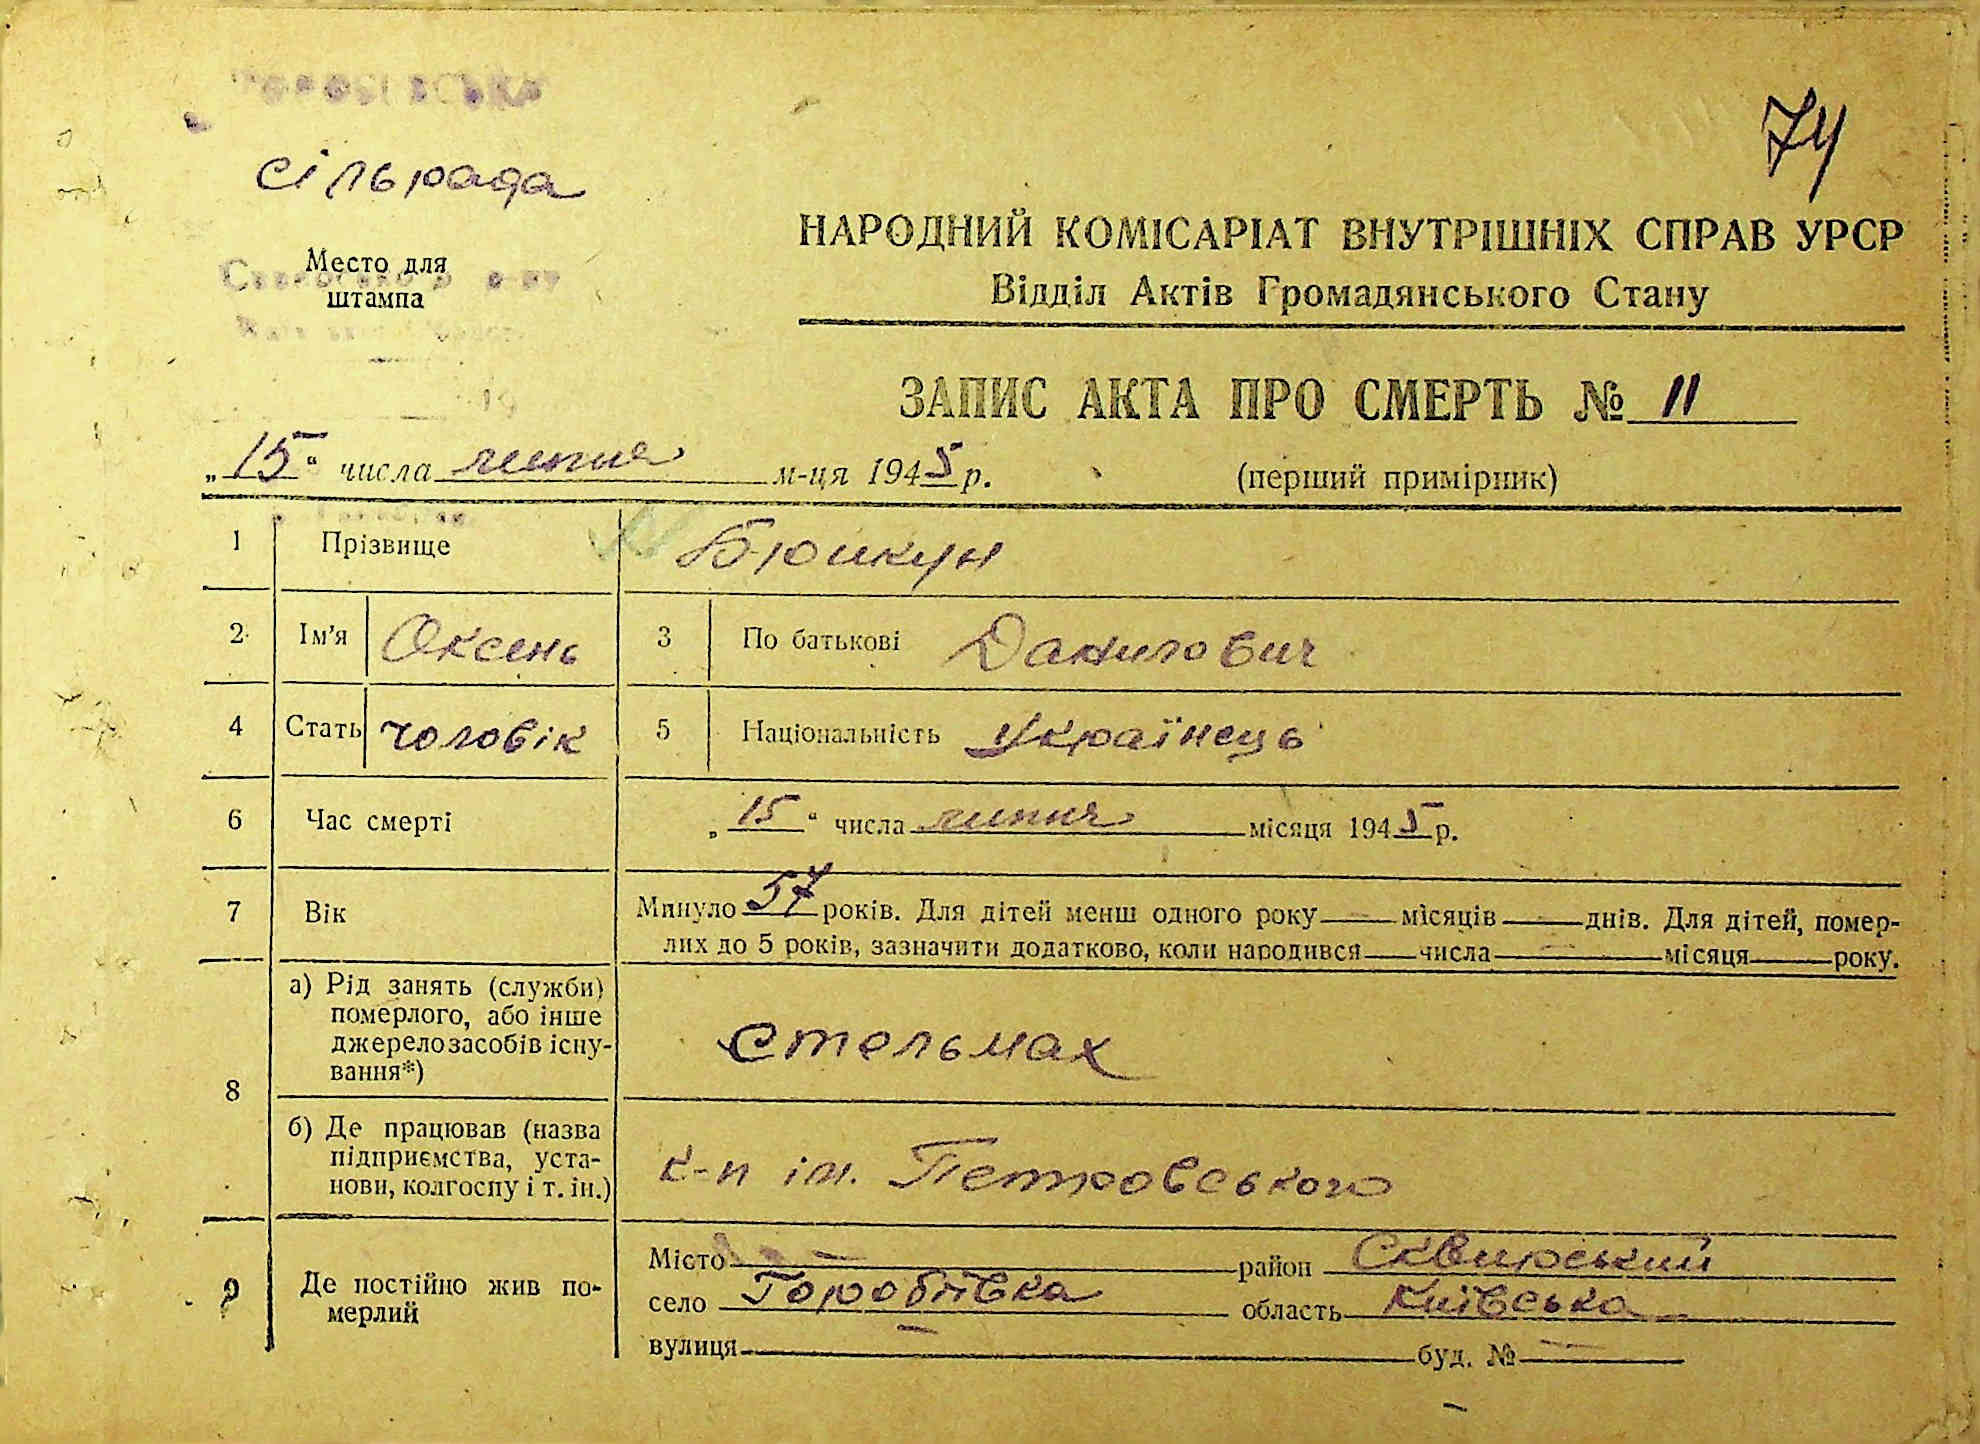 сільрада
74
Место для
штампа
НАРОДНИЙ КОМІСАРІАТ ВНУТРІШНІХ СПРАВ УРСР
Відділ Актів Громадянського Стану
ЗАПИС АКТА ПРО СМЕРТЬ № 11
„15“ числа липня м-ця 1945 р.
(перший примірник)
1 Прізвище Бюикун
2 Ім'я Оксень 3 По батькові Данилович
4 Стать чоловік 5 Національність Українець
6 Час смерті „15“ числа липня місяця 1945 р.
7 Вік Минуло 57 років. Для дітей менш одного року — місяців — днів. Для дітей, помер-
лих до 5 років, зазначити додатково, коли народився — числа — місяця — року.
8 а) Рід занять (служби)
померлого, або інше
джерело засобів існу-
вання*)
стельмах
б) Де працював (назва
підприємства, уста-
нови, колгоспу і т. ін.)
к-п ім. Петровського
9 Де постійно жив по-
мерлий
Місто — район Сквирський
село Горобіївка область Київська
вулиця — буд. № —